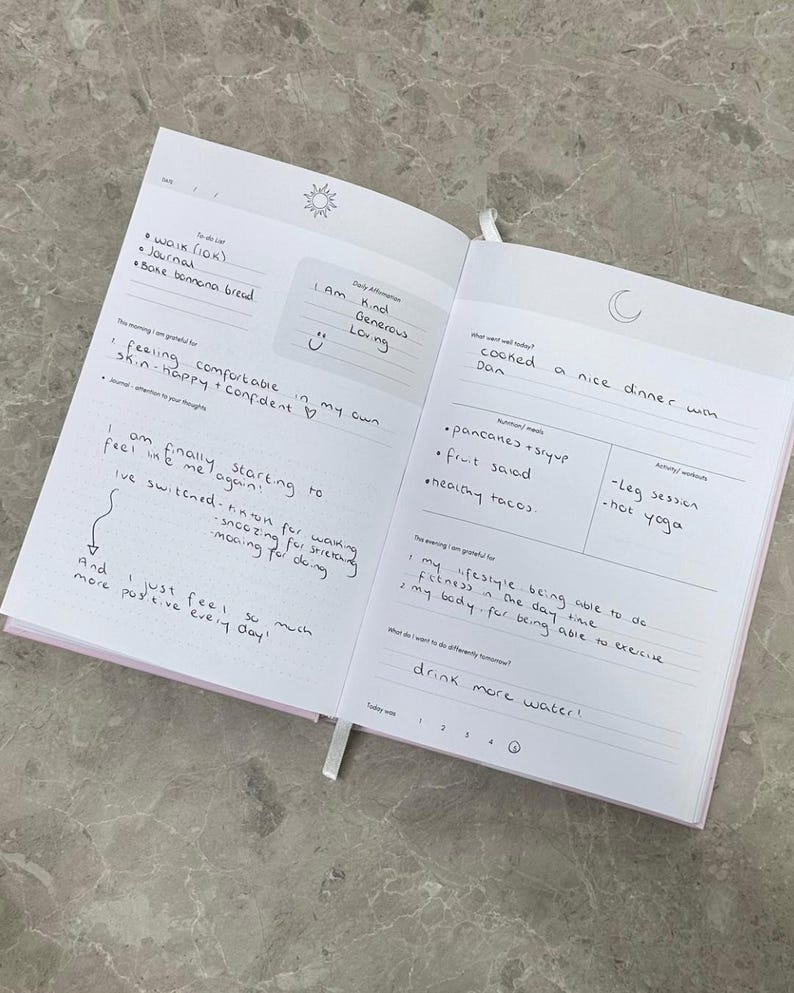 DATE / /
To-do List
• walk (10K)
• Journal
• Bake bannana bread
Daily Affirmation
I Am Kind
Generous
Loving
This morning I am grateful for
1. feeling comfortable in my own
skin - happy + confident ♡
• Journal - attention to your thoughts
I am finally starting to
feel like me again!
I've switched - tiktok for walking
- snoozing for stretching
- moaing for doing
And I just feel so much
more positive every day!
What went well today?
cooked a nice dinner with
Dan
Nutrition/ meals
• pancakes + sryup
• fruit salad
• healthy tacos.
Activity/ workouts
- Leg session
- hot yoga
This evening I am grateful for
1. my lifestyle being able to do
fitness in the day time
2. my body, for being able to exercise
What do I want to do differently tomorrow?
drink more water!
Today was 1 2 3 4 5